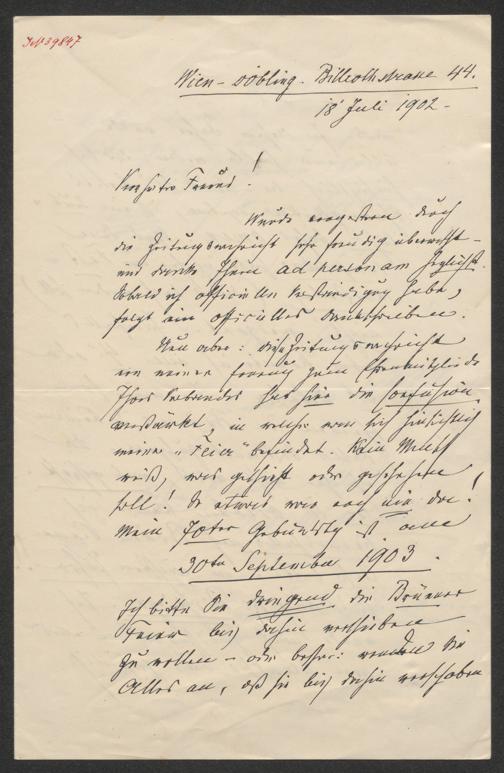 IN 39847
Wien-Döbling. Billrothstrasse 44.
18 Juli 1902 -
Verehrter Freund!
Wurde vorgestern durch
die Zeitungsnachricht sehr freudig überrascht -
und danke Ihnen ad personam herzlichst.
Sobald ich officielle Verständigung habe,
folgt ein officielles Dankschreiben.
Nun aber: diese Zeitungsnachricht
von meiner Ernennung zum Ehrenmitgliede
Ihres Verbandes hat hier die Confusion
verstärkt, in welcher man sich hinsichtlich
meiner "Feier" befindet. Kein Mensch
weiß, was geschieht oder geschehen
soll! So etwas war noch nie da!
Mein 70ter Geburtstag ist am
30ten September 1903.
Ich bitte Sie dringend die Brünner
Feier bis dahin verschieben
zu wollen - oder besser: wenden Sie
Alles an, daß sie bis dahin verschoben